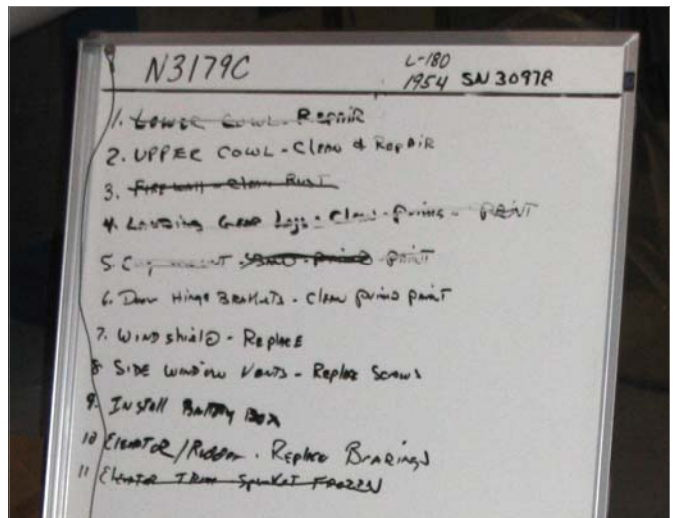 N3179C
L-180
1954 SN 30978
1. LOWER COWL - REPAIR
2. UPPER COWL - CLEAN & REPAIR
3. FIREWALL - CLEAN RUST
4. LANDING GEAR Legs - Clean - Prime - PAINT
5. PAINT
6. Door Hinge BRACKETS - Clean prime paint
7. WINDshielD - Replace
8 SIDE WINDOW VENTS - Replace Screws
9. INstall Battery Box
10 Elevator/Rudder - Replace BEARINGS
11 Elevator TRIM FROZEN